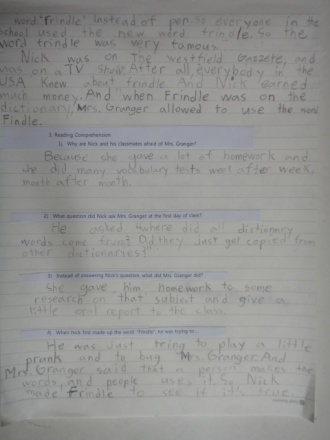 word "frindle" instead of pen. So everyone in the
school used the new word frindle. So the
word trindle was very famous.
Nick was on The Westfield Gazzete, and
was on a TV show. After all, everybody in the
USA knew about frindle And Nick earned
much money. And when Frindle was on the
dictionary, Mrs. Granger allowed to use the word
Findle.
3. Reading Comprehension
1) Why are Nick and his classmates afraid of Mrs. Granger?
Because she gave a lot of homework and
she did many vocabulary tests week after week,
month after month.
2) What question did Nick ask Mrs. Granger at the first day of class?
He asked where did all dictionary
words come from? Did they just get copied from
other dictionaries?
3) Instead of answering Nick's question what did Mrs. Granger did?
She gave him homework to some
research on that subject and give a
little oral report to the class.
4) When Nick first made up the word "Frindle", he was trying to...
He was just trying to play a little
prank and to bug Mrs. Granger. And
Mrs. Granger said that a person makes the
words, and people uses it. So Nick
made Frindle to see if it's true.